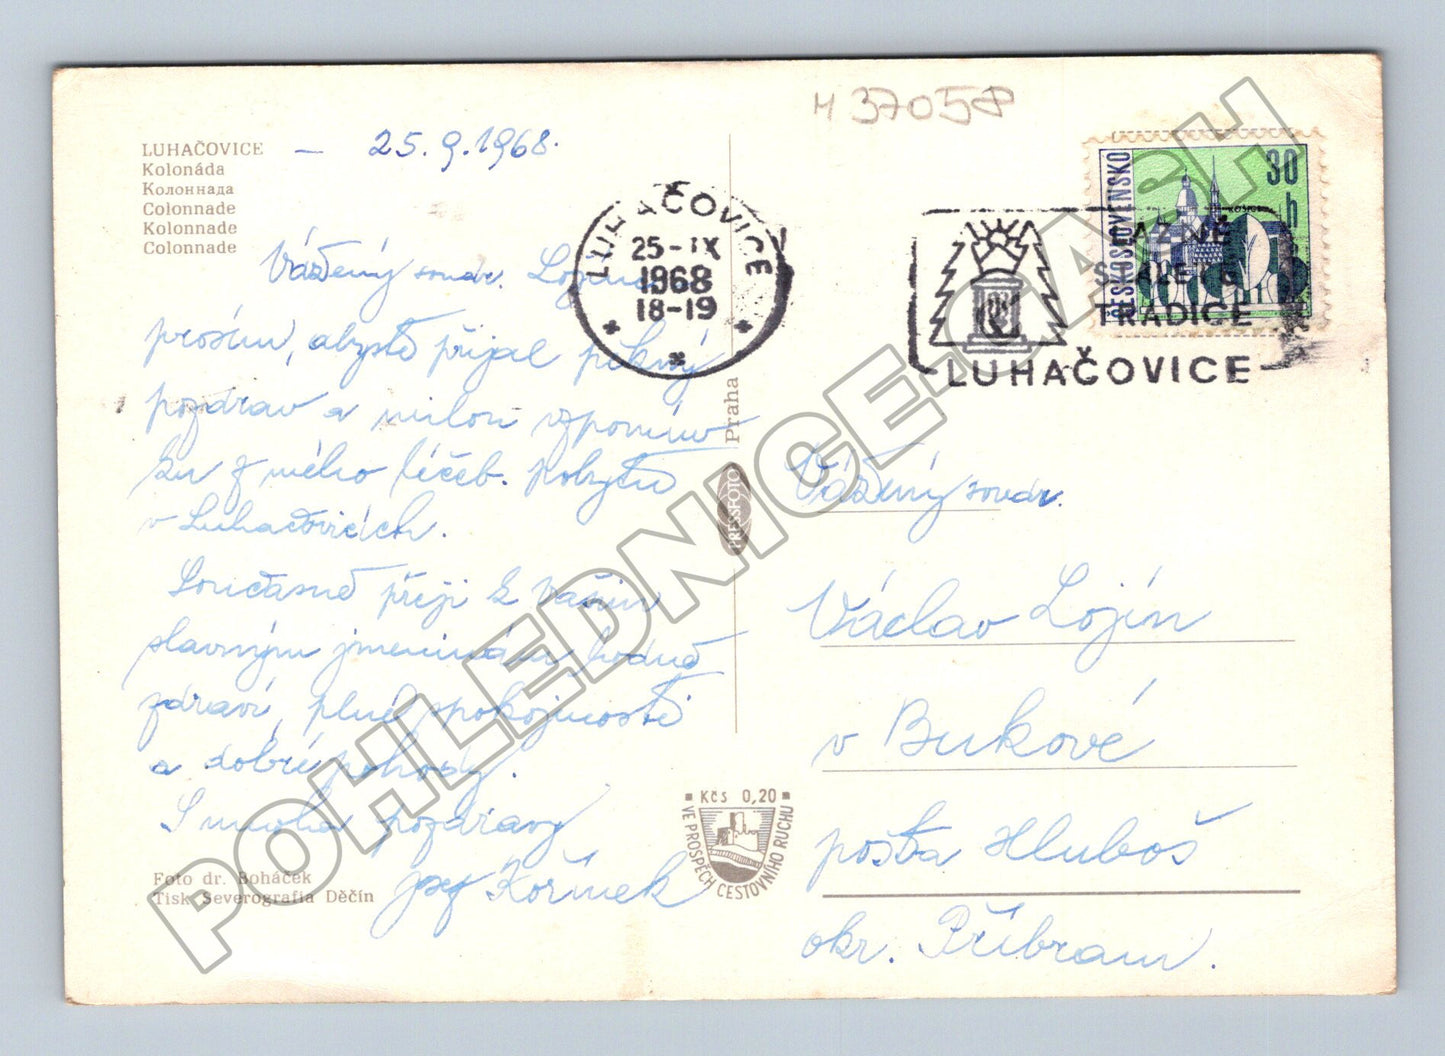 M 37058
LUHAČOVICE – 25.9.1968.
Kolonáda
Колоннада
Colonnade
Kolonnade
Colonnade
Vážený soudr. Lojíne
prosím, abyste přijal pěkný
pozdrav a milou vzpomín-
ku z mého léčeb. pobytu
v Luhačovicích.
Současně přeji k Vašim
slavným jmeninám hodně
zdraví, plně spokojnosti
a dobré pohody.
S mnoha pozdravy
Josef Kořínek
Foto dr. Boháček
Tisk Severografia Děčín
LUHAČOVICE
25-IX
1968
18-19
Praha
PRESSFOTO
Kčs 0,20
VE PROSPĚCH CESTOVNÍHO RUCHU
ČESKOSLOVENSKO
30 h
KOŠICE
TRADICE
LUHAČOVICE
Vážený soudr.
Václav Lojín
v Bukové
pošta Hluboš
okr. Příbram.
POHLEDNICE.CASH